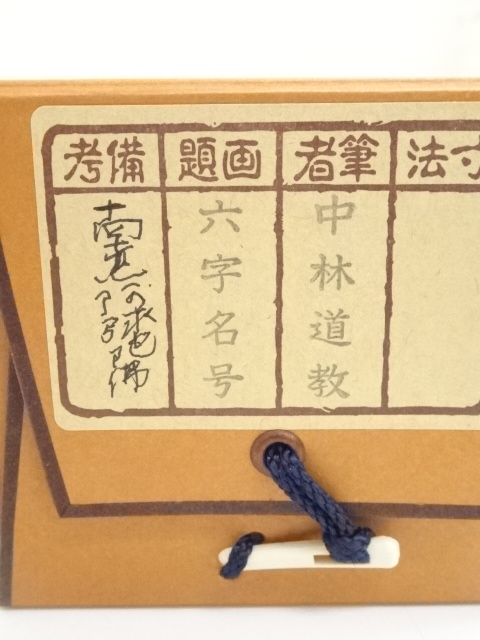 寸法
筆者
中林道教
画題
六字名号
備考
南無阿弥陀佛